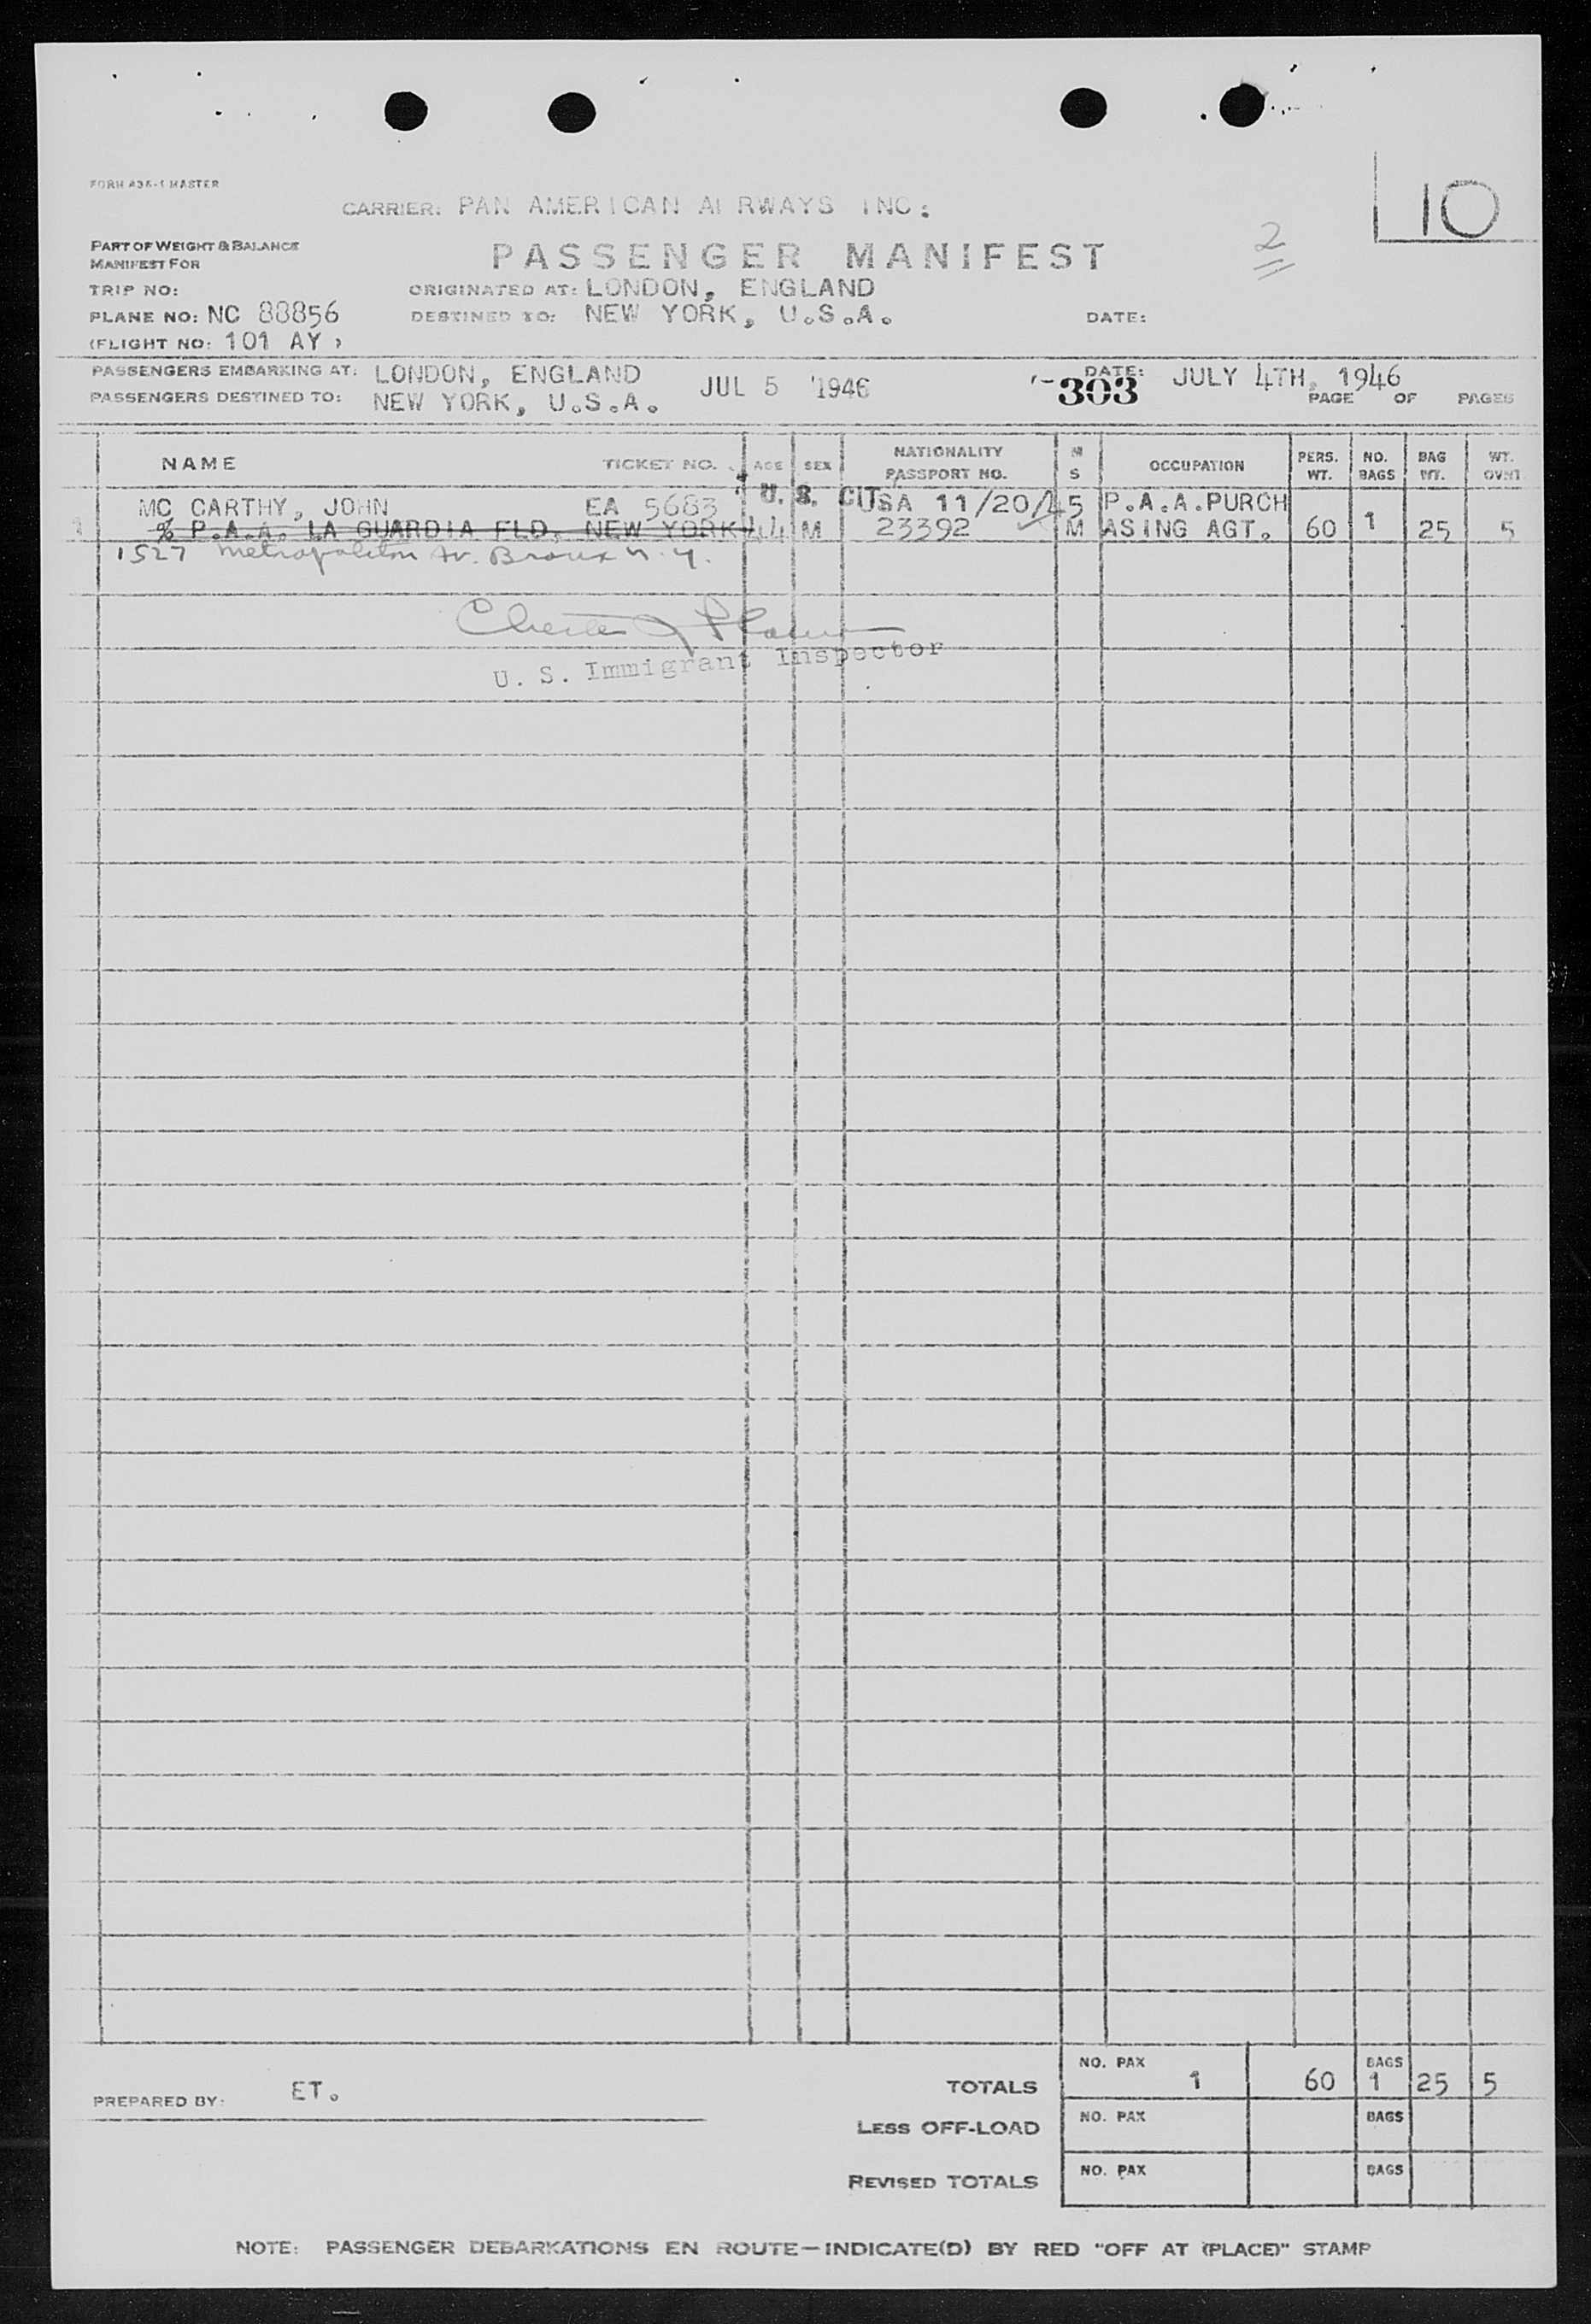 FORM #36-1 MASTER
10
CARRIER: PAN AMERICAN AI RWAYS INC:
PART OF WEIGHT & BALANCE
MANIFEST FOR
PASSENGER MANIFEST
2
TRIP NO:
ORIGINATED AT: LONDON, ENGLAND
PLANE NO: NC 88856
DESTINED TO: NEW YORK, U.S.A.
DATE:
(FLIGHT NO: 101 AY )
PASSENGERS EMBARKING AT: LONDON, ENGLAND
JUL 5 1946
303
DATE: JULY 4TH, 1946
PASSENGERS DESTINED TO: NEW YORK, U.S.A.
PAGE OF PAGES
NAME TICKET NO. AGE SEX NATIONALITY PASSPORT NO. M S OCCUPATION PERS. WT. NO. BAGS BAG WT. WT. OVNT
U. S. CIT
MC CARTHY, JOHN EA 5683 USA 11/20/45 P.A.A.PURCH
1 % P.A.A. LA GUARDIA FLD, NEW YORK 44 M 23392 M ASING AGT. 60 1 25 5
1527 Metropolitan Av. Bronx N.Y.
U. S. Immigrant Inspector
PREPARED BY: ET.
TOTALS NO. PAX 1 60 BAGS 1 25 5
LESS OFF-LOAD NO. PAX BAGS
REVISED TOTALS NO. PAX BAGS
NOTE: PASSENGER DEBARKATIONS EN ROUTE—INDICATE(D) BY RED "OFF AT (PLACE)" STAMP